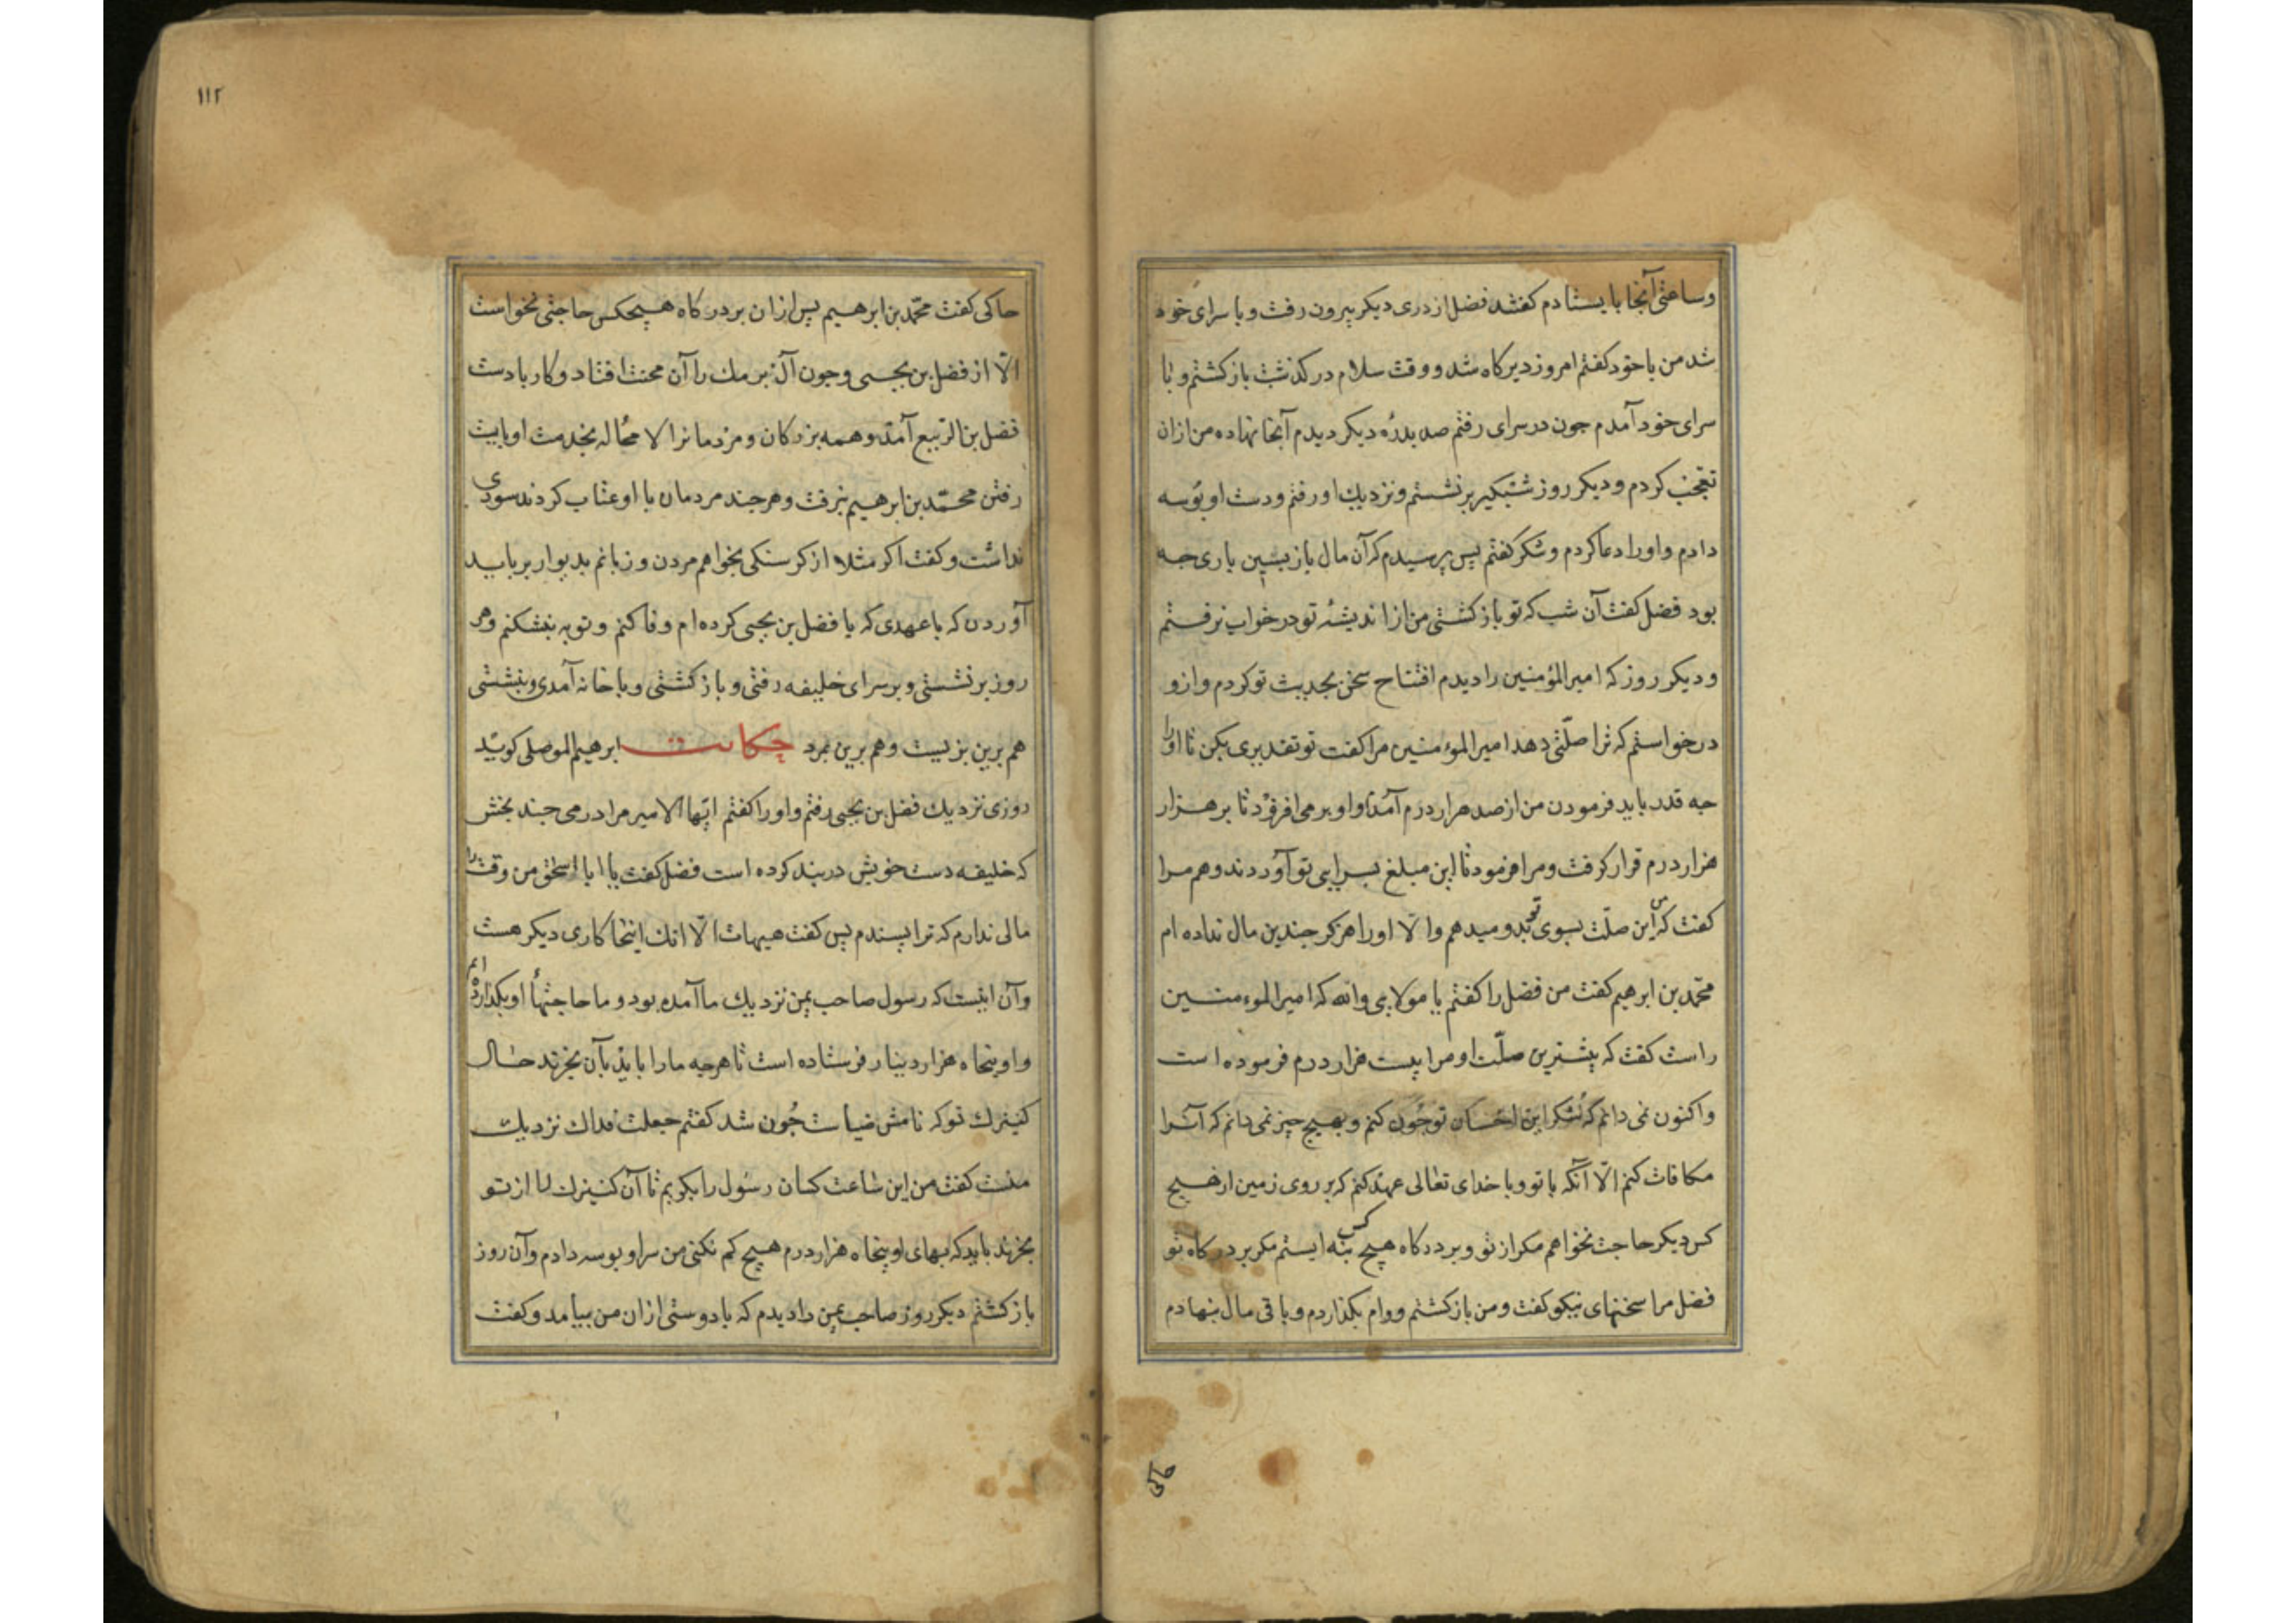 وساعتی آنجا بایستادم کفتند فضل از دری دیکر بیرون رفت و با سرای خود
شد من با خود کفتم امروز دیرکاه شد و وقت سلام در کذشت باز کشتم و با
سرای خود آمدم جون در سرای رفتم صد بدرهٔ دیکر دیدم آنجا نهاده من از ان
تعجب کردم و دیکر روز شبکیر برنشستم و نزدیك او رفتم و دست او بوسه
دادم و او را دعا کردم و شکر کفتم پس پرسیدم که آن مال بازپسین باری جه
بود فضل کفت آن شب که تو باز کشتی من از اندیشهٔ تو در خواب نرفتم
و دیکر روز که امیرالمؤمنین را دیدم افتتاح سخن بحدیث تو کردم و ازو
درخواستم که ترا صلتی دهد امیرالمؤمنین مرا کفت تو تقدیری بکن تا او را
جه قدر باید فرمودن من از صد هزار درم آمدم و او برمی افزود تا بر هزار
هزار درم قرار کرفت و مرا فرمود تا این مبلغ بسرای تو آوردند و هم مرا
کفت که من این صلت بسوی تو بدو میدهم و الا او را هرکز جندین مال نداده ام
محمد بن ابرهیم کفت من فضل را کفتم یا مولایی والله که امیرالمؤمنین
راست کفت که بیشترین صلت او مرا بیست هزار درم فرموده است
و اکنون نمی دانم که شکر این احسان تو جون کنم و بهیج جیز نمی دانم که آنرا
مکافات کنم الا آنکه با تو و با خدای تعالی عهد کنم که بر روی زمین از هیج
کس دیکر حاجت نخواهم مکر از تو و بر درکاه هیج کس بنه ایستم مکر بر درکاه تو
فضل مرا سخنهای نیکو کفت و من باز کشتم و وام بکذاردم و باقی مال بنهادم
حاکی
١١٢
حاکی کفت محمد بن ابرهیم پس از ان بر درکاه هیجکس حاجتی نخواست
الا از فضل بن یحیی و جون آل برمك را آن محنت افتاد و کار با دست
فضل بن الربیع آمد و همه بزرکان و مردمانرا لا محاله بخدمت او بایست
رفتن محمد بن ابرهیم نرفت و هرجند مردمان با او عتاب کردند سودی
نداشت و کفت اکر مثلا از کرسنکی بخواهم مردن و زبانم بدیوار برباید
آوردن که با عهدی که با فضل بن یحیی کرده ام وفا کنم و توبه نشکنم و هر
روز برنشستی و بر سرای خلیفه رفتی و باز کشتی و با خانه آمدی و بنشستی
هم برین بزیست و هم برین بمرد حکایت ابرهیم الموصلی کوید
روزی نزدیك فضل بن یحیی رفتم و او را کفتم ایها الامیر مرا درمی جند بخش
که خلیفه دست خویش در بند کرده است فضل کفت یا ابا اسحق من وقت را
مالی ندارم که ترا پسندم پس کفت هیهات الا انك اینجا کاری دیکر هست
و آن اینست که رسول صاحب یمن نزدیك ما آمده بود و ما حاجتهأ او بکذارده ایم
و او پنجاه هزار دینار فرستاده است تا هرجه ما را باید بآن بخرند حال
کنیزك تو که نامش ضیا ست جون شد کفتم جعلت فداك نزدیك
منست کفت من این ساعت کسان رسول را بکویم تا آن کنیزك را از تو
بخرند باید که بهای او پنجاه هزار درم هیج کم نکنی من سر او بوسه دادم و آن روز
باز کشتم دیکر روز صاحب یمن را دیدم که با دوستی از ان من بیامد و کفت